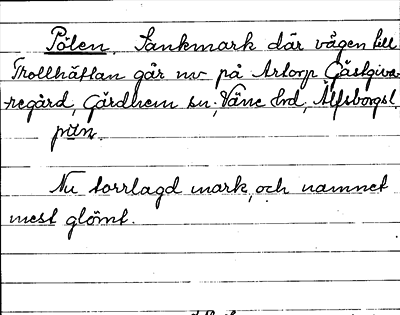 Pölen. Sankmark där vägen till
Trollhättan går nv på Artorp Gästgiva-
regård, Gärdhem sn; Väne hd, Älfsborgs l.
pöln.
Nu torrlagd mark, och namnet
mest glömt.